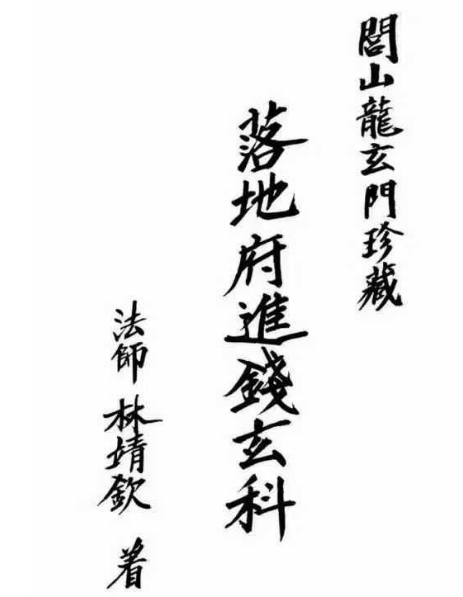 閭山龍玄門珍藏
落地府進錢玄科
法師 林靖欽 著